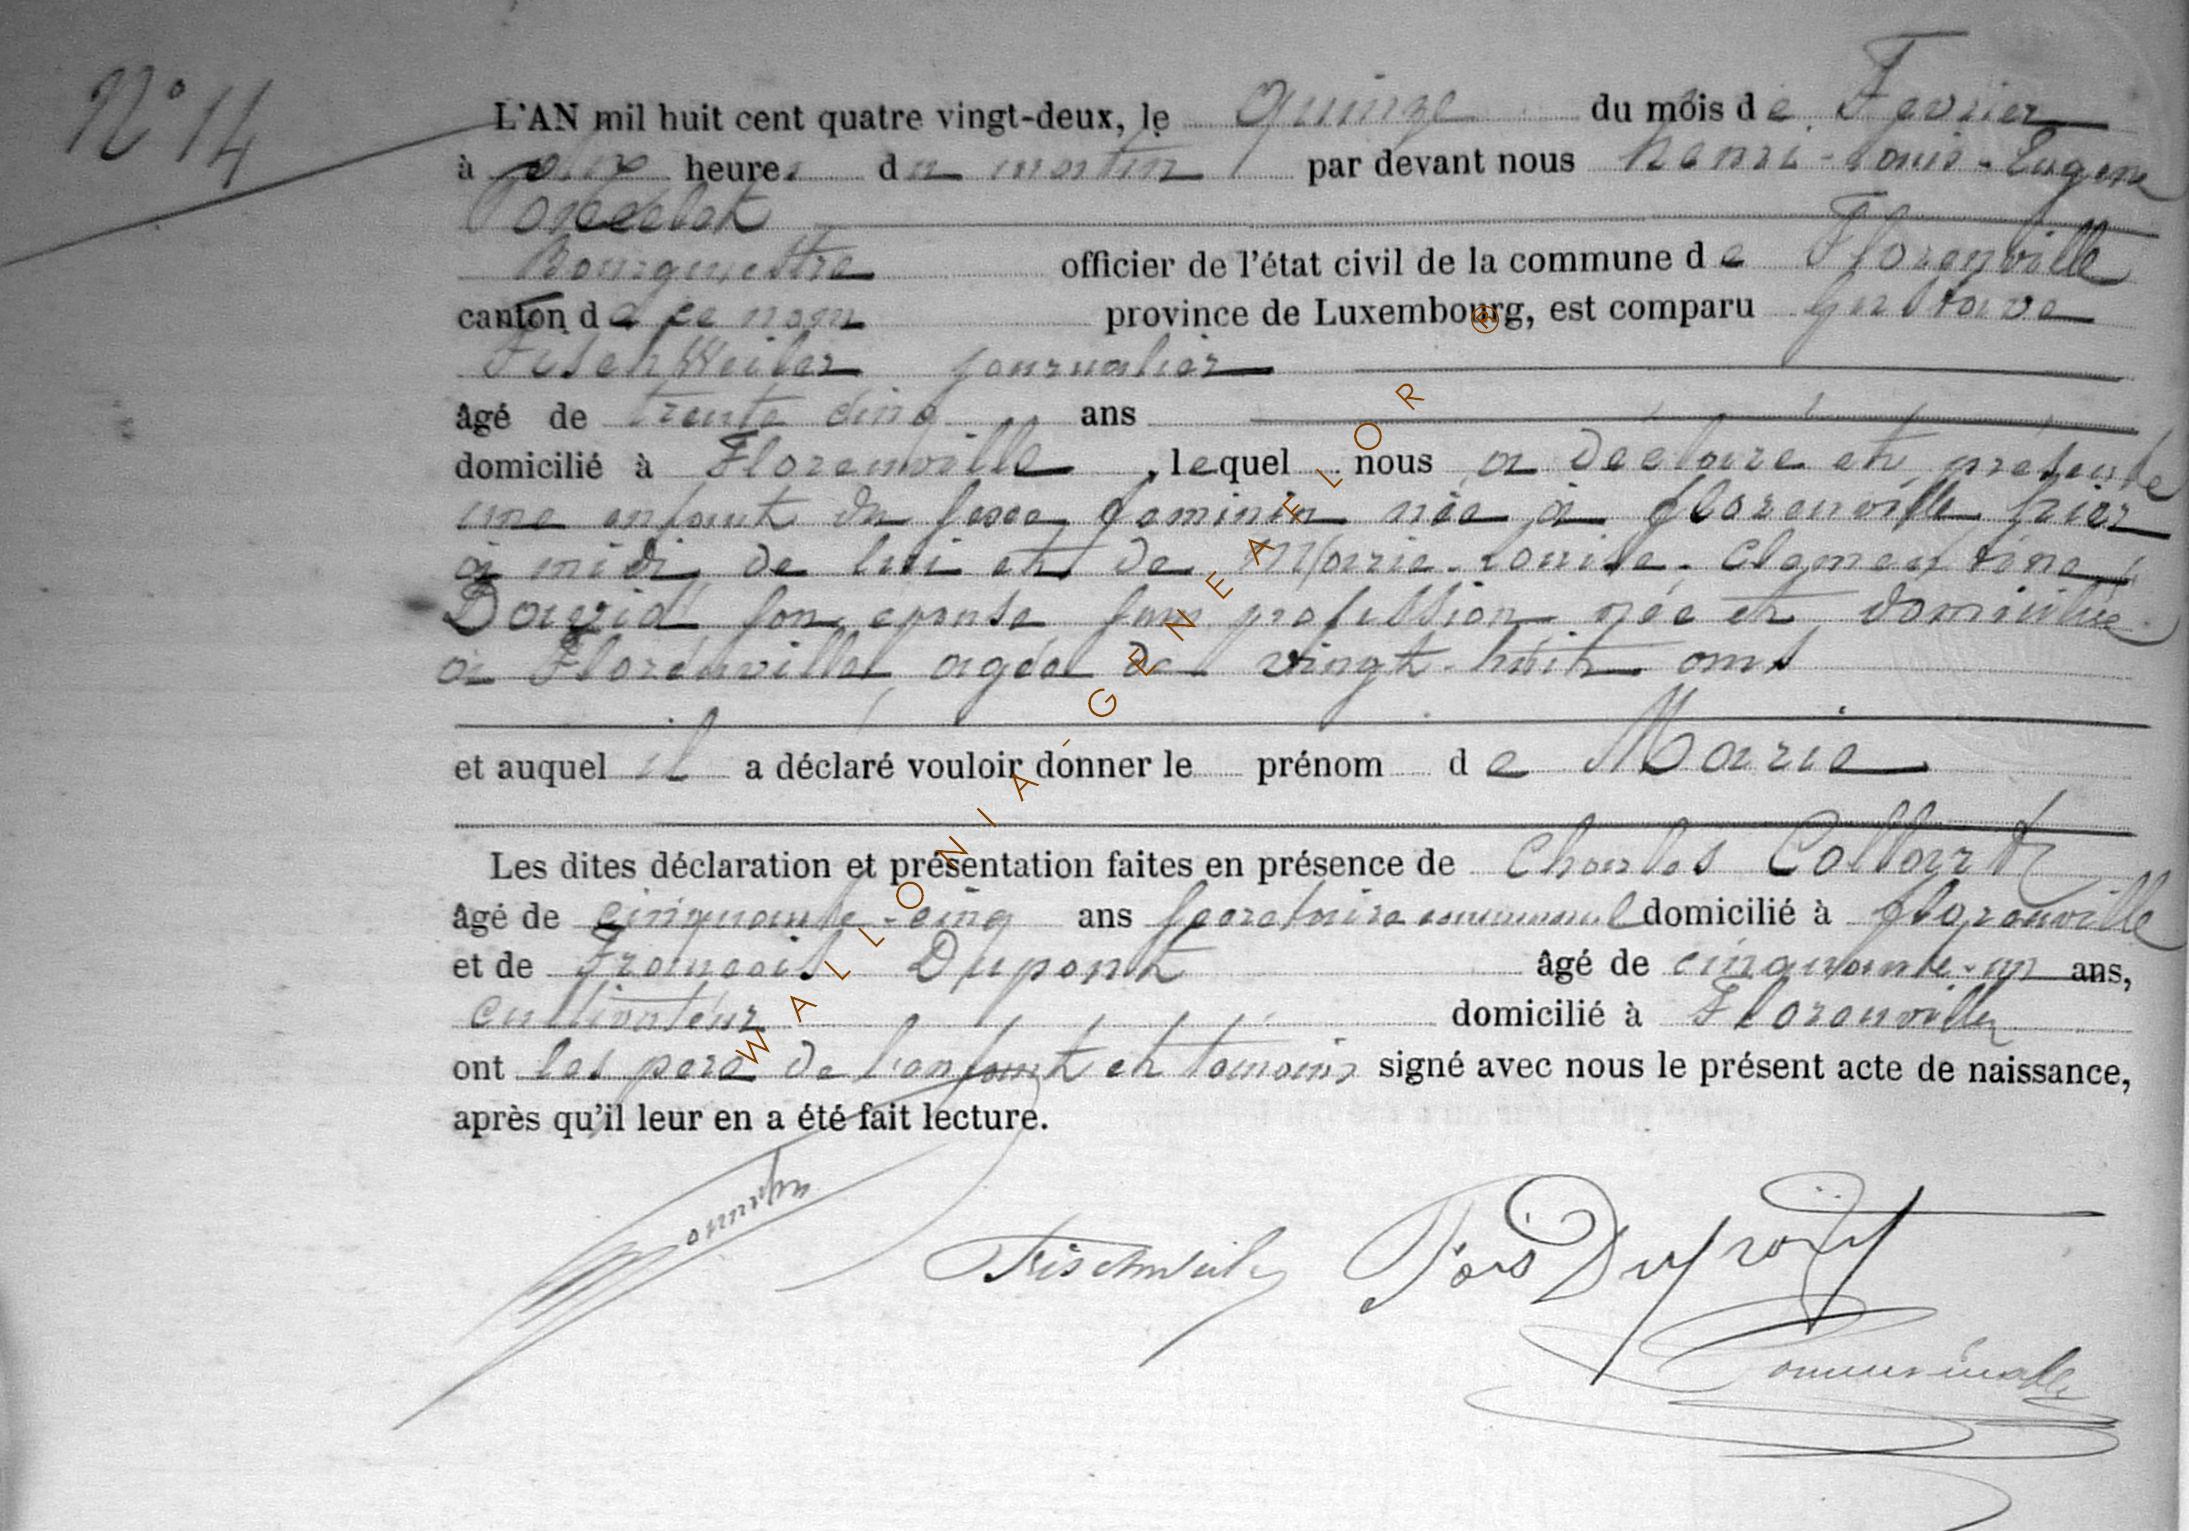 N° 14
L'AN mil huit cent quatre vingt-deux, le quinze du mois de Fevrier
à dix heures du matin par devant nous henri-Louis-Eugene
Bourgmestre officier de l'état civil de la commune de Florenville
canton de ce nom province de Luxembourg, est comparu Gustave
FischWeiler journalier
âgé de trente cinq ans
domicilié à Florenville, lequel nous a déclaré et présenté
une enfant du sexe feminin née à florenville hier
à midi de lui et de Marie-Louise-Clementine
David son epouse sans profession née et domiciliée
a Florenville agée de vingt-huit ans
et auquel il a déclaré vouloir donner le prénom de Marie
Les dites déclaration et présentation faites en présence de Charles Collart
âgé de cinquante-cinq ans secretaire communal domicilié à florenville
et de Francois Dupont âgé de cinquante-un ans,
cultivateur domicilié à Florenville
ont les pere de l'enfant et temoins signé avec nous le présent acte de naissance,
après qu'il leur en a été fait lecture.
Fischweiler Fois Dupont
WALLONIA-GENEAELOR ®